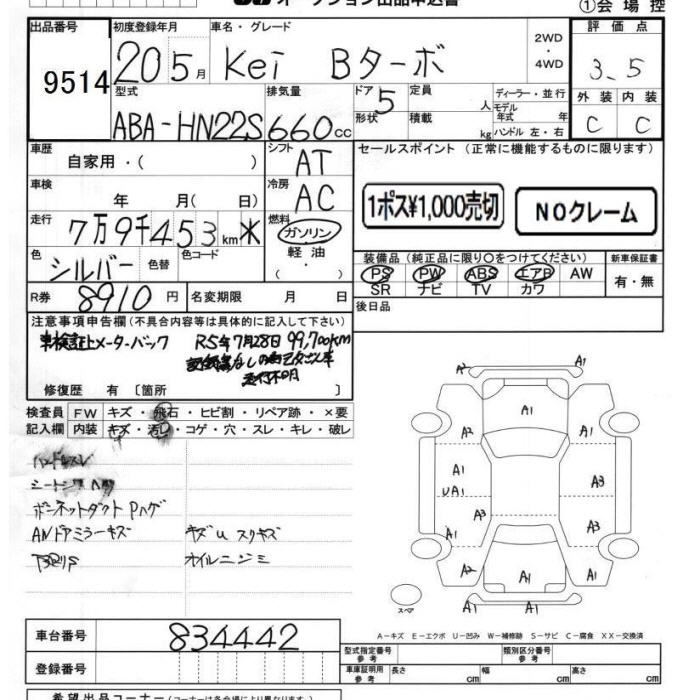 オークション出品申込書
①会場控
出品番号 初度登録年月 車名・グレード 2WD・4WD 評価点
9514 20 5月 Kei Bターボ 3.5
型式 排気量 ドア 5 定員 人 ディーラー・並行 外装 内装
ABA-HN22S 660cc 形状 積載 kg モデル年式 年 ハンドル 左・右 C C
車歴 自家用・( ) シフト AT セールスポイント (正常に機能するものに限ります)
車検 年 月( 日) 冷房 AC 1ポス¥1,000売切 NOクレーム
走行 7万9千453km 燃料 ガソリン
色 シルバー 色替 色コード 軽油 装備品 (純正品に限り○をつけてください) 新車保証書
PS PW ABS エアB AW 有・無
SR ナビ TV カワ
R券 8910円 名変期限 月 日 後日品
注意事項申告欄(不具合内容等は具体的に記入して下さい)
車検証上メーターバック R5年7月28日 99,700km
走行不明
修復歴 有 [箇所 ]
検査員 FW キズ・飛石・ヒビ割・リペア跡・×要
記入欄 内装 キズ・汚レ・コゲ・穴・スレ・キレ・破レ
ハンドルスレ
ボーネットダクト Pハゲ
ANドアミラーキズ キズu スリキズ
オイルニジミ
A2 A1
A1
A2
A1 A3
UA1
A3 A3
A1
A2 A1 A1
A1 A1
スペア
A-キズ E-エクボ U-凹み W-補修跡 S-サビ C-腐食 XX-交換済
車台番号 834442
型式指定番号 参考 類別区分番号 参考
登録番号 車庫証明用 参考 長さ cm 幅 cm 高さ cm
希望出品コーナー(コーナーは各会場により異なります)